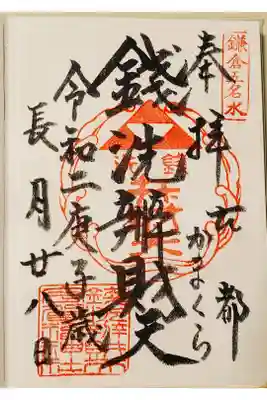 鎌倉五名水
奉拝
古都
かまくら
錢洗辨財天
令和二庚子歳
長月廿八日